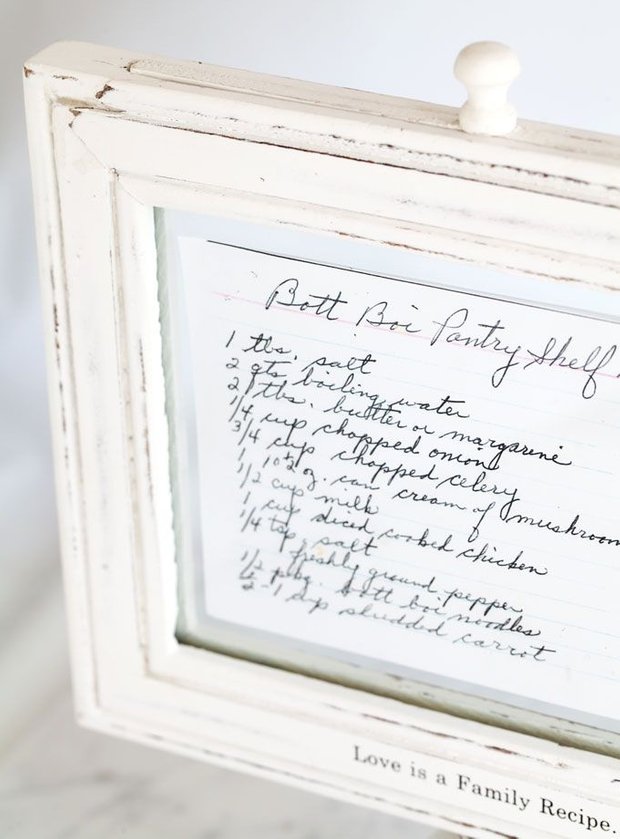 Bott Boi Pantry Shelf
1 tbs. salt
2 qts boiling water
2 tbs. butter or margarine
1/4 cup chopped onion
3/4 cup chopped celery
1 10 1/2 oz. can cream of mushroom
1/2 cup milk
1 cup diced cooked chicken
1/4 tsp. salt
freshly ground pepper
1/2 pkg. bott boi noodles
1 cup shredded carrot
Love is a Family Recipe.